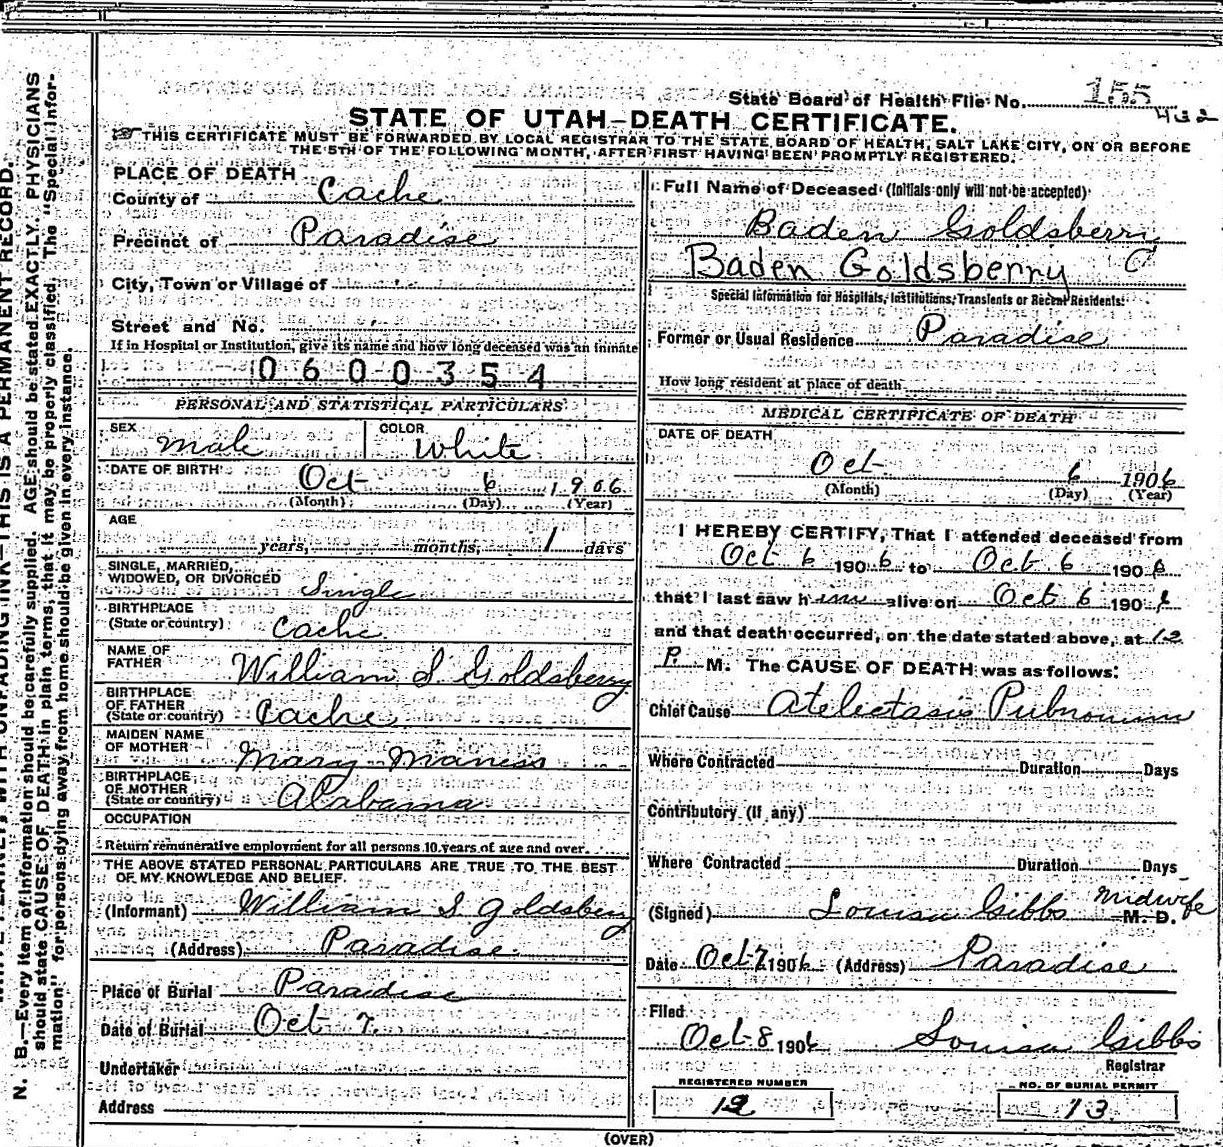 State Board of Health File No. 155
432
STATE OF UTAH—DEATH CERTIFICATE.
THIS CERTIFICATE MUST BE FORWARDED BY LOCAL REGISTRAR TO THE STATE BOARD OF HEALTH, SALT LAKE CITY, ON OR BEFORE
THE 5TH OF THE FOLLOWING MONTH, AFTER FIRST HAVING BEEN PROMPTLY REGISTERED.
PLACE OF DEATH
County of Cache
Precinct of Paradise
City, Town or Village of
Street and No.
If in Hospital or Institution, give its name and how long deceased was an inmate
0600354
PERSONAL AND STATISTICAL PARTICULARS
SEX male COLOR White
DATE OF BIRTH Oct 6 1906
(Month) (Day) (Year)
AGE
years, months, 1 days
SINGLE, MARRIED,
WIDOWED, OR DIVORCED Single
BIRTHPLACE
(State or country) Cache
NAME OF
FATHER William S Goldsberry
BIRTHPLACE
OF FATHER
(State or country) Cache
MAIDEN NAME
OF MOTHER Mary Maness
BIRTHPLACE
OF MOTHER
(State or country) Alabama
OCCUPATION
Return remunerative employment for all persons 10 years of age and over.
THE ABOVE STATED PERSONAL PARTICULARS ARE TRUE TO THE BEST
OF MY KNOWLEDGE AND BELIEF.
(Informant) William S Goldsberry
(Address) Paradise
Place of Burial Paradise
Date of Burial Oct 7.
Undertaker
Address
Full Name of Deceased (Initials only will not be accepted)
Baden Goldsberry
Baden Goldsberry
Special Information for Hospitals, Institutions, Transients or Recent Residents.
Former or Usual Residence Paradise
How long resident at place of death
MEDICAL CERTIFICATE OF DEATH
DATE OF DEATH
Oct 6 1906
(Month) (Day) (Year)
I HEREBY CERTIFY, That I attended deceased from
Oct 6 1906 to Oct 6 1906
that I last saw him alive on Oct 6 190
and that death occurred, on the date stated above, at 12
P. M. The CAUSE OF DEATH was as follows:
Chief Cause Atelectasis
Where Contracted Duration Days
Contributory (if any)
Where Contracted Duration Days
(Signed) Louisa Gibbs Midwife
M. D.
Date Oct 7 1906 (Address) Paradise
Filed
Oct 8 1906 Louisa Gibbs
Registrar
REGISTERED NUMBER
12
NO. OF BURIAL PERMIT
13
(OVER)
N. B.—Every item of information should be carefully supplied. AGE should be stated EXACTLY. PHYSICIANS
should state CAUSE OF DEATH in plain terms, that it may be properly classified. The "Special Infor-
mation" for persons dying away from home should be given in every instance.
WITH UNFADING INK—THIS IS A PERMANENT RECORD.